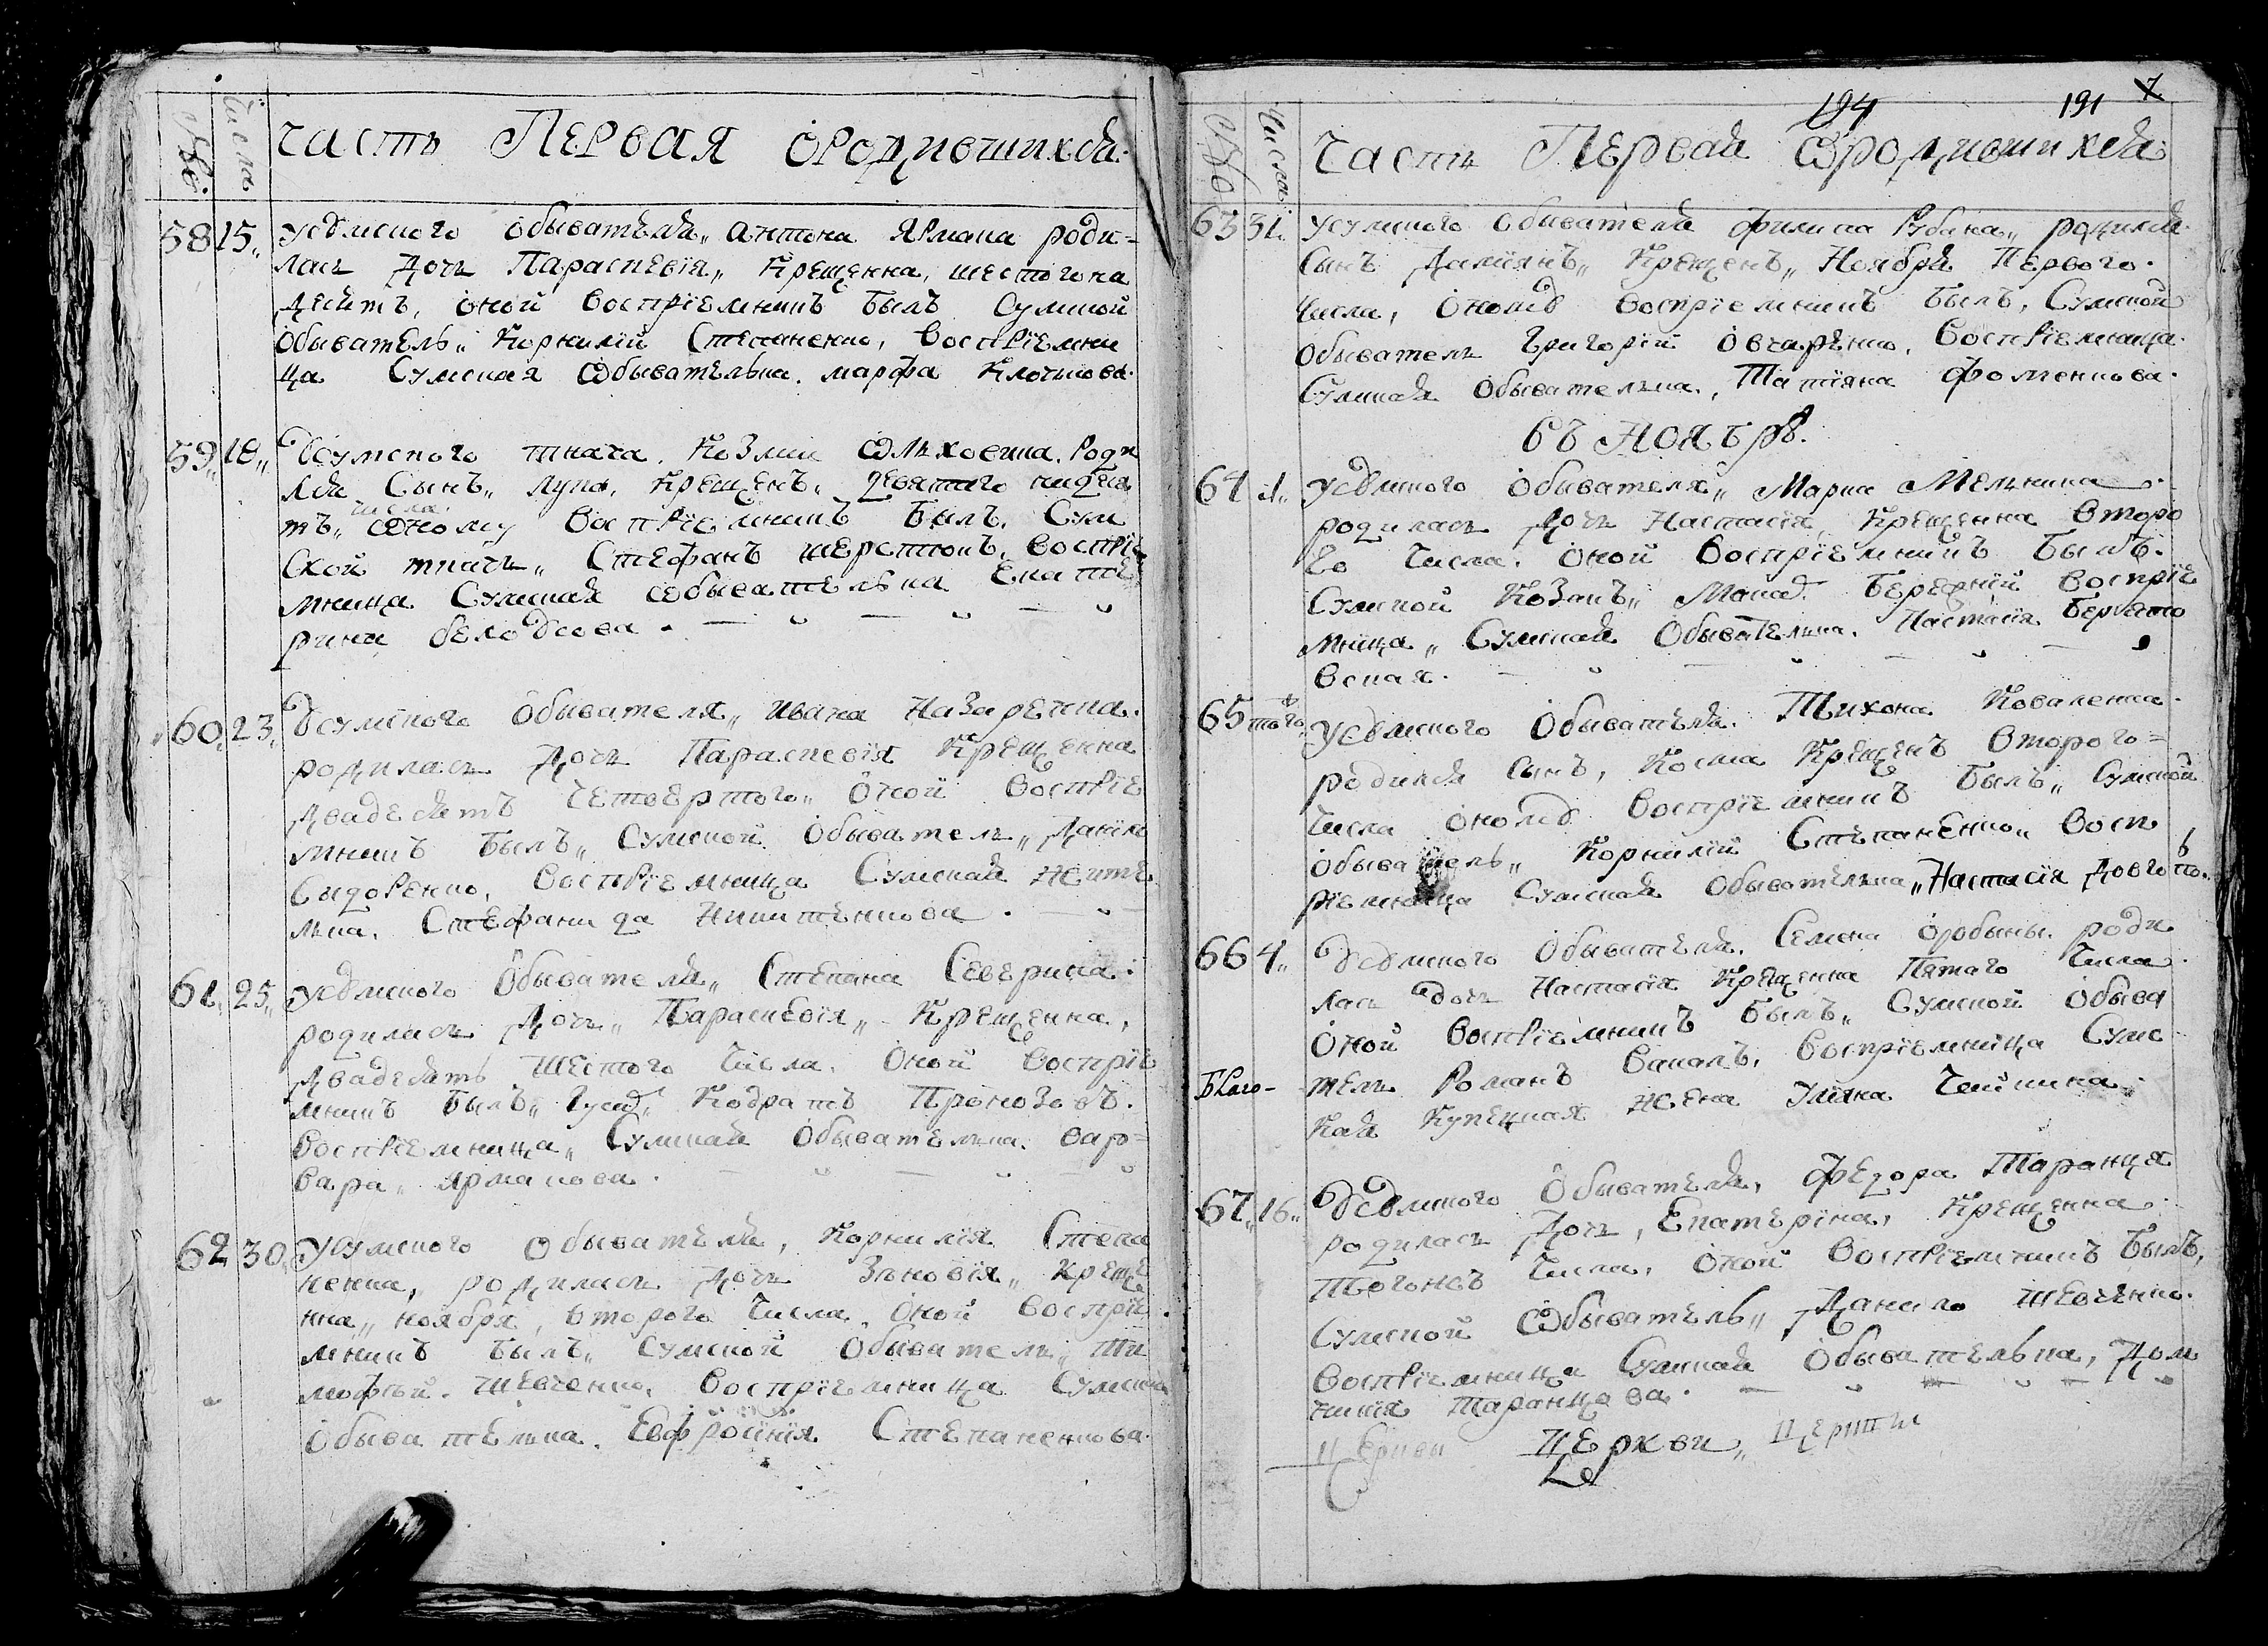 №
Числа
Часть Первая Ородившихся
58 15. Усумского Обывателя, Антона Ярмака роди-
лась Дочь Параскевія, Крещенна, шестогона
десять, оной Воспріемникъ Былъ Сумской
Обыватель, Корнилій Степаненко, Воспріемни
ца Сумская Обывателька. марфа Клочкова.
59. 18. Усумского ткача. Козми Ольховика. Роди
лся Сынъ, лупа, Крещенъ, девятого надеся
ть, числа. Оному Воспріемникъ Былъ, Сум
ской ткачь, Стефанъ шерстюкъ, Воспріе
мница Сумская Обывателька Екате
рина белоусова.
60. 23. Усумского Обывателя, Ивана Назаренка.
родилась Дочь Параскевія Крещенна
двадесять Четвертого, Оной Воспріе
мникъ Былъ, Сумской Обыватель, Данило
Сидоренко, Воспріемница Сумская жите
лька. Стефанида Никитенкова.
61. 25. Усумского Обывателя, Степана Северина.
родилась Дочь, Параскевія, Крещенна,
двадесять Шестого Числа. Оной Воспріе
мникъ Былъ, Кодратъ Прокозовъ.
Воспріемница, Сумская Обывателька. вар-
вара, Ярмакова.
62 30. Усумского Обывателя, Корнилія Степа
ненка, родилась Дочь Зѣновія, Креще
нна, ноября, второго Числа, Оной Воспріе
мникъ Былъ, Сумской Обыватель, Ти
мофей. Шевченко, Воспріемница Сумска
Обывателька. Евфросінія Степаненкова.
194 191 7
№
Числа
Часть Первая Ородившихся
63 31. Усумского Обывателя филипа Рубана, родился
Сынъ Даміянъ, Крещенъ, Ноября Первого.
Числа, Оному Воспріемникъ Былъ, Сумской
Обыватель Григорій Овчаренко, Воспріемница
Сумская Обывателька, Татіяна Фоменкова.
въ Ноябрѣ.
64 1. Усумского Обывателя, Марка Мельника.
родилась Дочь Настасія, Крещенна Второ
го Числа. Оной Воспріемникъ Былъ.
Сумской Козакъ, Бережній Воспріе
мница, Сумская Обывателька. Настасія
вская.
65 того Усумского Обывателя. Тихона Коваленка.
родился Сынъ, Косма Крещенъ Второго-
Числа Оному Воспріемникъ Былъ, Сумской
Обыватель, Корнилій Степаненко, Восп
ріемница Сумская Обывателька, Настасія
66 4. Усумского Обывателя. Семена Оробыны. роди
лась дочь Настасія Крещенна Пятаго Числа.
Оной Воспріемникъ Былъ, Сумской Обыва
Благо- тель Романъ Вакалъ. Воспріемница Сумс
кая Купецкая жена Уліяна
67. 16. Усумского Обывателя, Федора Таранця
родилась Дочь, Екатеріна, Крещенна
Тогожъ Числа, Оной Воспріемникъ Былъ,
Сумской Обыватель, Данило Шевченко.
Воспріемница Сумская Обывателька, Дом
никія Таранцова.
Церкви Церкви,